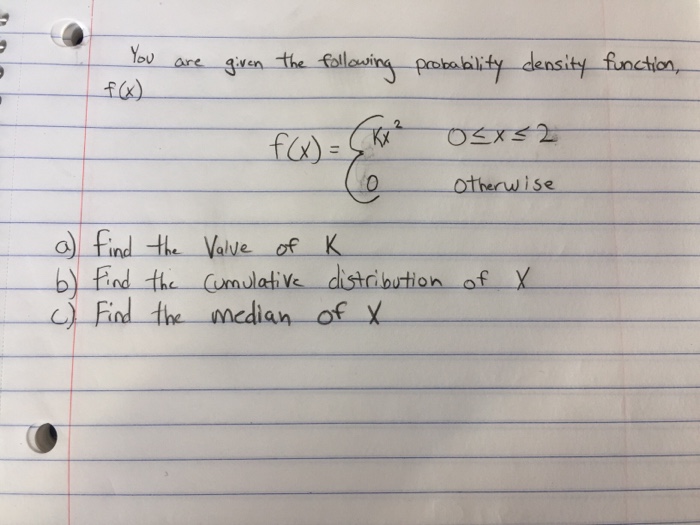 You are given the following probability density function,
f(x)
f(x) = { Kx² 0≤x≤2
0 otherwise
a) find the Value of K
b) find the cumulative distribution of X
c) Find the median of X